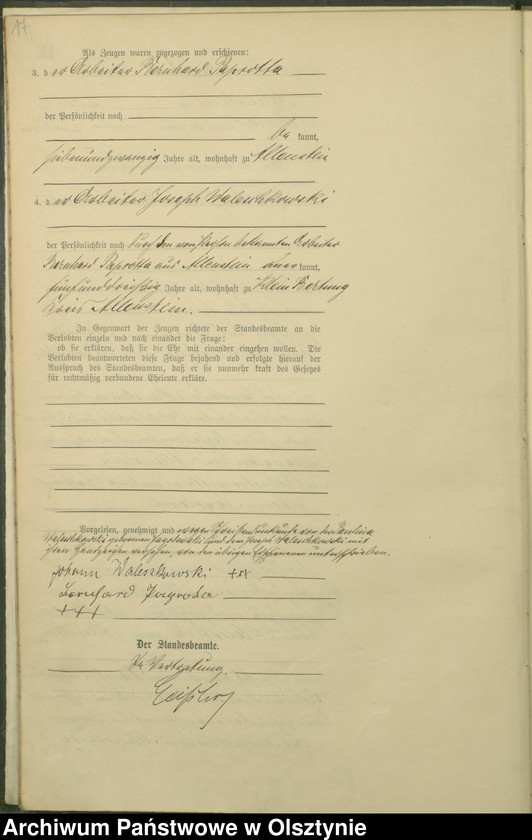 17
Als Zeugen waren zugezogen und erschienen:
3. der Arbeiter Bernhard Paprotta
der Persönlichkeit nach
be kannt,
siebenundzwanzig Jahre alt, wohnhaft zu Allenstein
4. der Arbeiter Joseph Waleschkowski
der Persönlichkeit nach durch den von Person bekannten Arbeiter
Bernhard Paprotta aus Allenstein aner kannt,
fünfunddreißig Jahre alt, wohnhaft zu Klein Bertung
Kreis Allenstein.
In Gegenwart der Zeugen richtete der Standesbeamte an die
Verlobten einzeln und nach einander die Frage:
ob sie erklären, daß sie die Ehe mit einander eingehen wollen. Die
Verlobten beantworteten diese Frage bejahend und erfolgte hierauf der
Ausspruch des Standesbeamten, daß er sie nunmehr kraft des Gesetzes
für rechtmäßig verbundene Eheleute erkläre.
Vorgelesen, genehmigt und wegen Schreibensunkunde von der
Waleschkowski geborenen und dem Joseph Waleschkowski mit
ihren Handzeichen versehen, von den übrigen Erschienenen unterschrieben.
Johann Waleszkowski +++
Bernhard
+++
Der Standesbeamte.
In Vertretung.
Archiwum Państwowe w Olsztynie